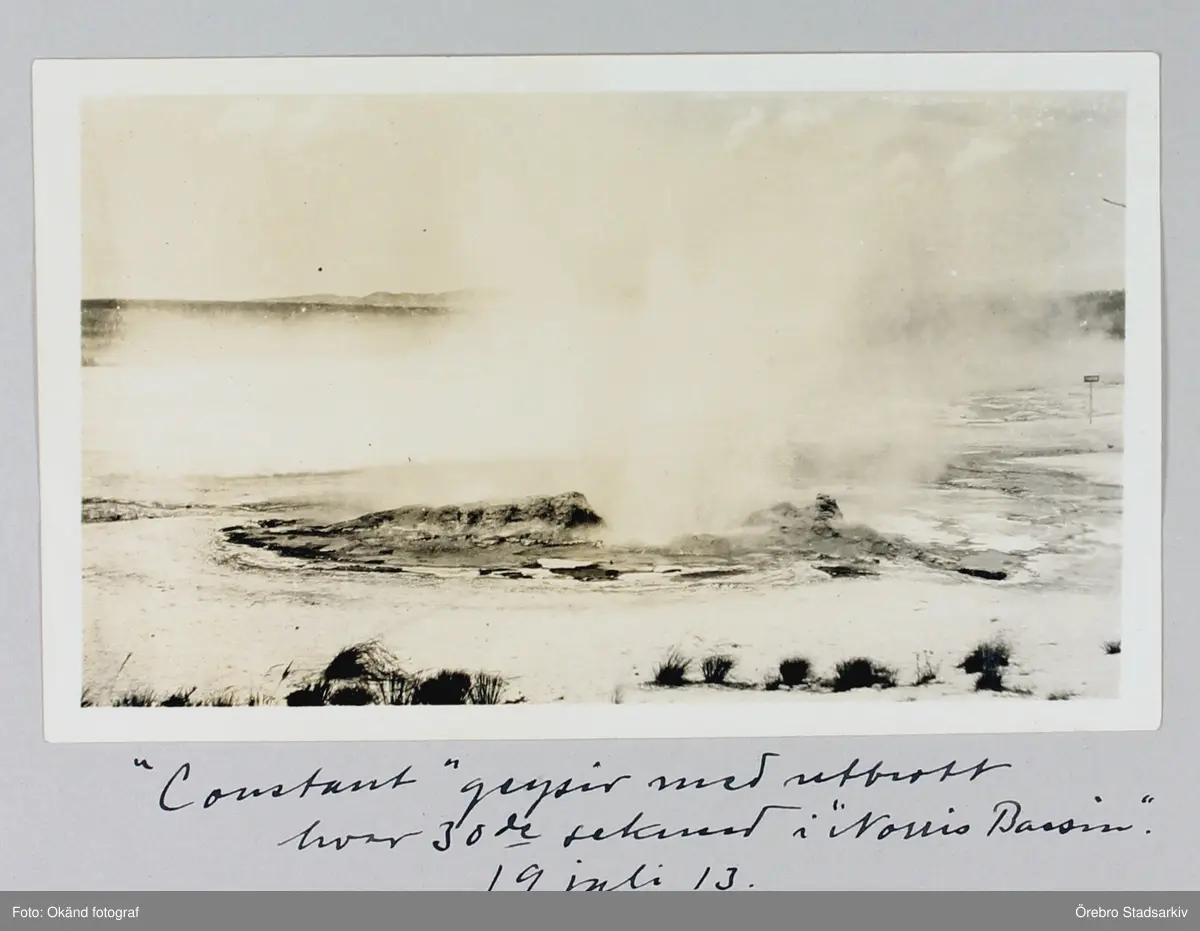 "Constant" geysir med utbrott
hvar 30de sekund i "Norris Bassin".
19 juli 13.
Foto: Okänd fotograf
Örebro Stadsarkiv